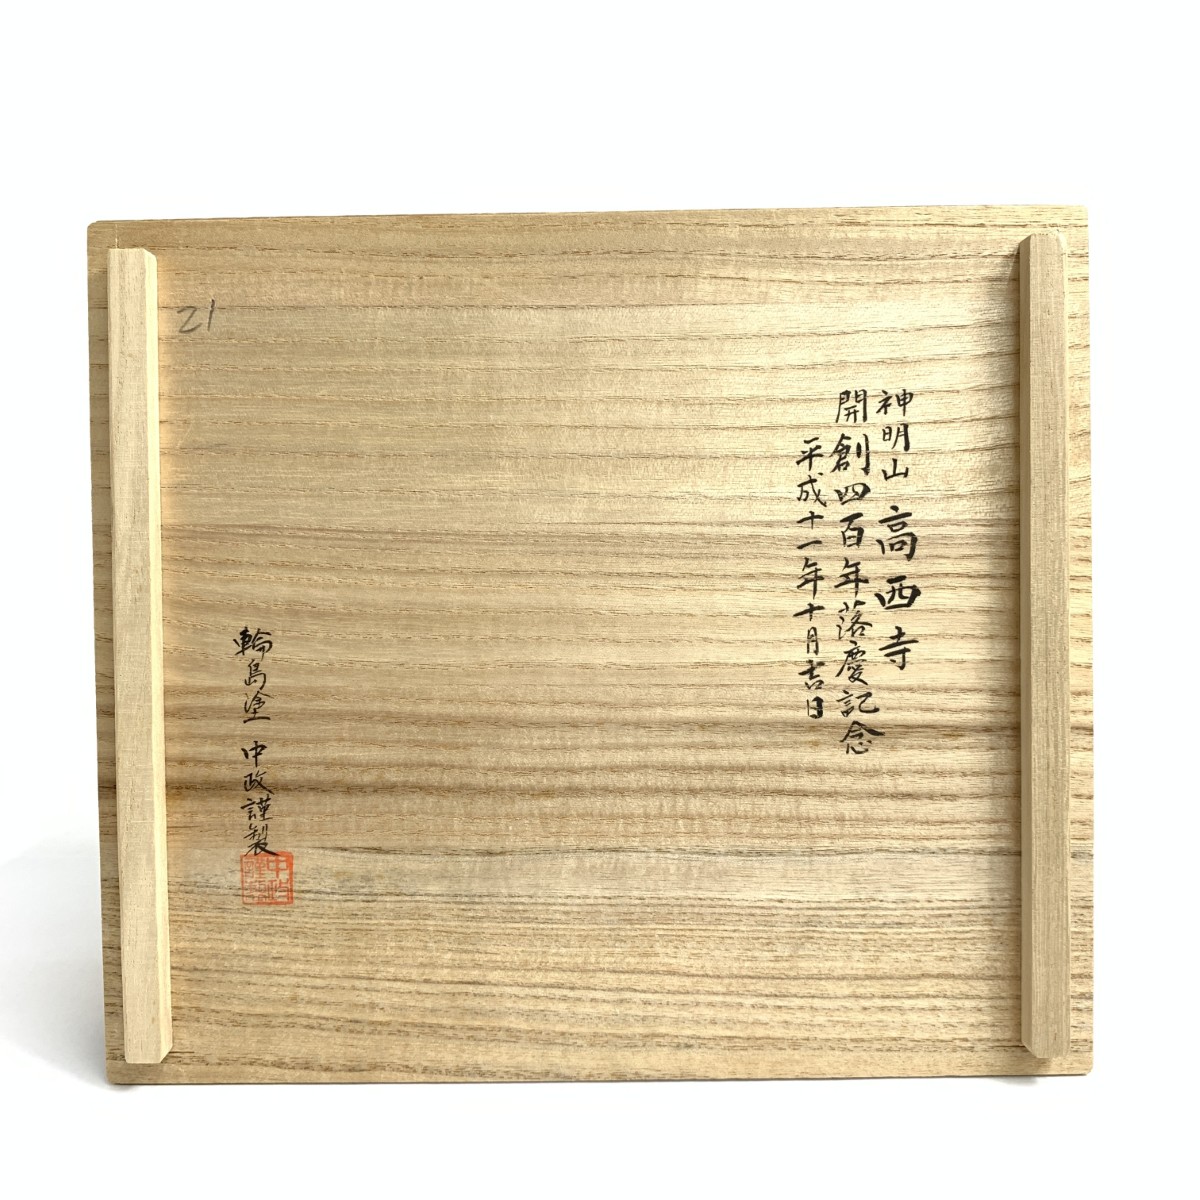 神明山 高西寺
開創四百年落慶記念
平成十一年十月吉日
輪島塗 中政謹製
中政謹製
21